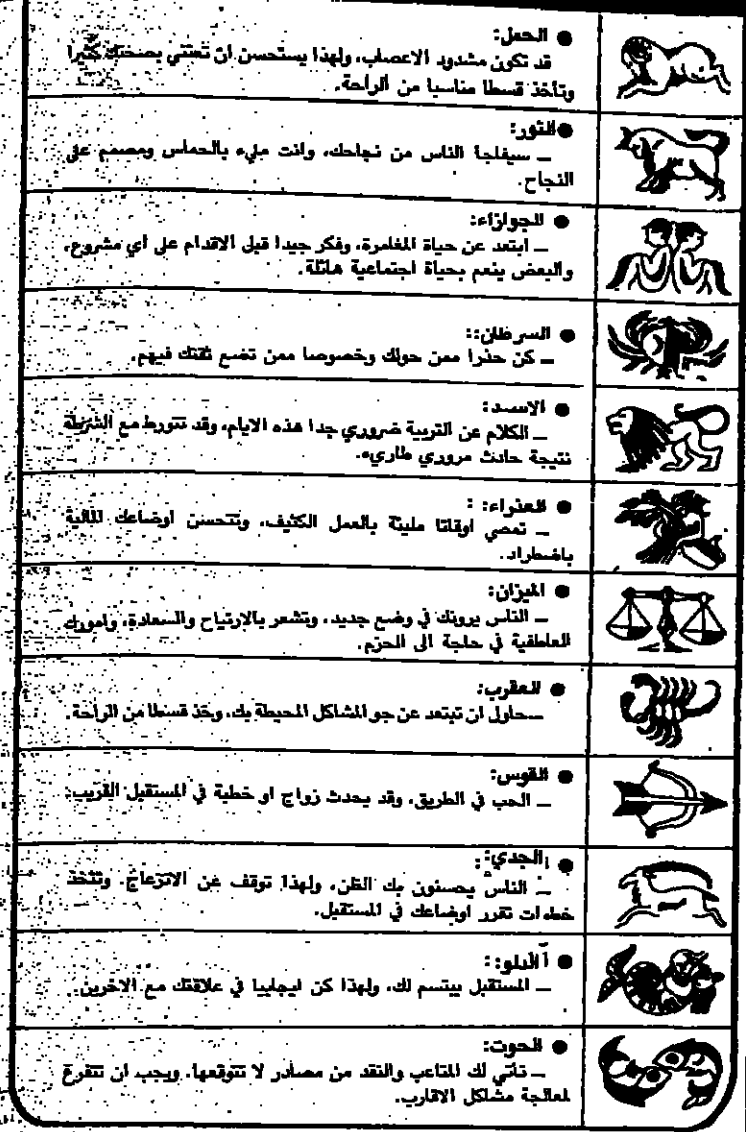 ● الحمل:
قد تكون مشدود الاعصاب، ولهذا يستحسن ان تعتني بصحتك كثيرا
وتأخذ قسطا مناسبا من الراحة.
● الثور:
ـ سيفاجأ الناس من نجاحك، وانت مليء بالحماس ومصمم على
النجاح.
● الجوازاء:
ـ ابتعد عن حياة المغامرة، وفكر جيدا قبل الاقدام على اي مشروع،
والبعض ينعم بحياة اجتماعية هائلة.
● السرطان::
ـ كن حذرا ممن حولك وخصوصا ممن تضع ثقتك فيهم.
● الاسد:
ـ الكلام عن التربية ضروري جدا هذه الايام، وقد تتورط مع الشرطة
نتيجة حادث مروري طاريء.
● العذراء: :
ـ تمضي اوقاتا مليئة بالعمل الكثيف، وتتحسن اوضاعك المالية
باضطراد.
● الميزان:
ـ الناس يرونك في وضع جديد، وتشعر بالارتياح والسعادة، وامورك
العاطفية في حاجة الى الحزم.
● العقرب:
ـ حاول ان تبتعد عن جو المشاكل المحيطة بك، وخذ قسطا من الراحة.
● القوس:
ـ الحب في الطريق، وقد يحدث زواج او خطبة في المستقبل القريب.
● الجدي: :
ـ الناس يحسنون بك الظن، ولهذا توقف عن الانزعاج. وتتخذ
خطوات تقرر اوضاعك في المستقبل.
● الدلو::
ـ المستقبل يبتسم لك، ولهذا كن ايجابيا في علاقتك مع الاخرين.
● الحوت:
ـ تأتي لك المتاعب والنقد من مصادر لا تتوقعها. ويجب ان تتفرغ
لمعالجة مشاكل الاقارب.